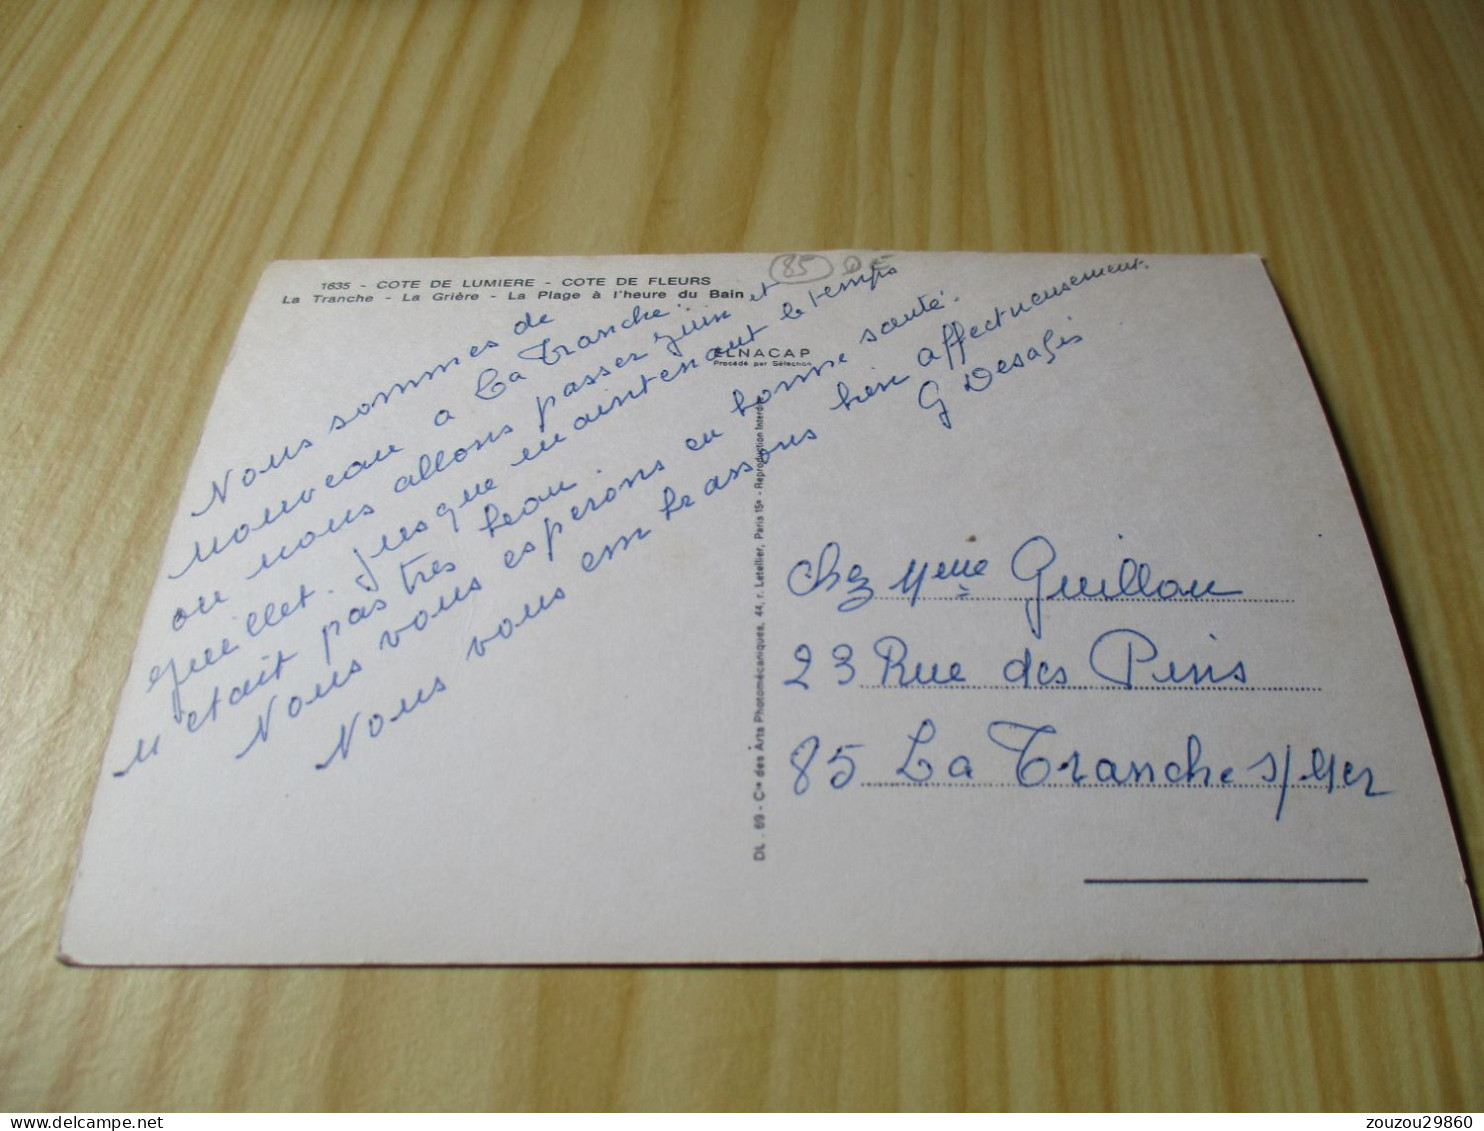 1635 - COTE DE LUMIERE - COTE DE FLEURS
La Tranche - La Grière - La Plage à l'heure du Bain
85
ELNACAP
Procédé par Sélection
Nous sommes de
nouveau a La Tranche.
ou nous allons passer Juin et
Juillet. Jusque maintenant le temps
n'etait pas très beau
Nous vous esperons en bonne santé.
Nous vous embrassons bien affectueusement.
G Desagis
DL - 69 - Cie des Arts Photomécaniques, 44, r. Letellier, Paris 15e - Reproduction Interdite
Chez Mme Guillou
23 Rue des Pins
85 La Tranche s/Mer
zouzou29860